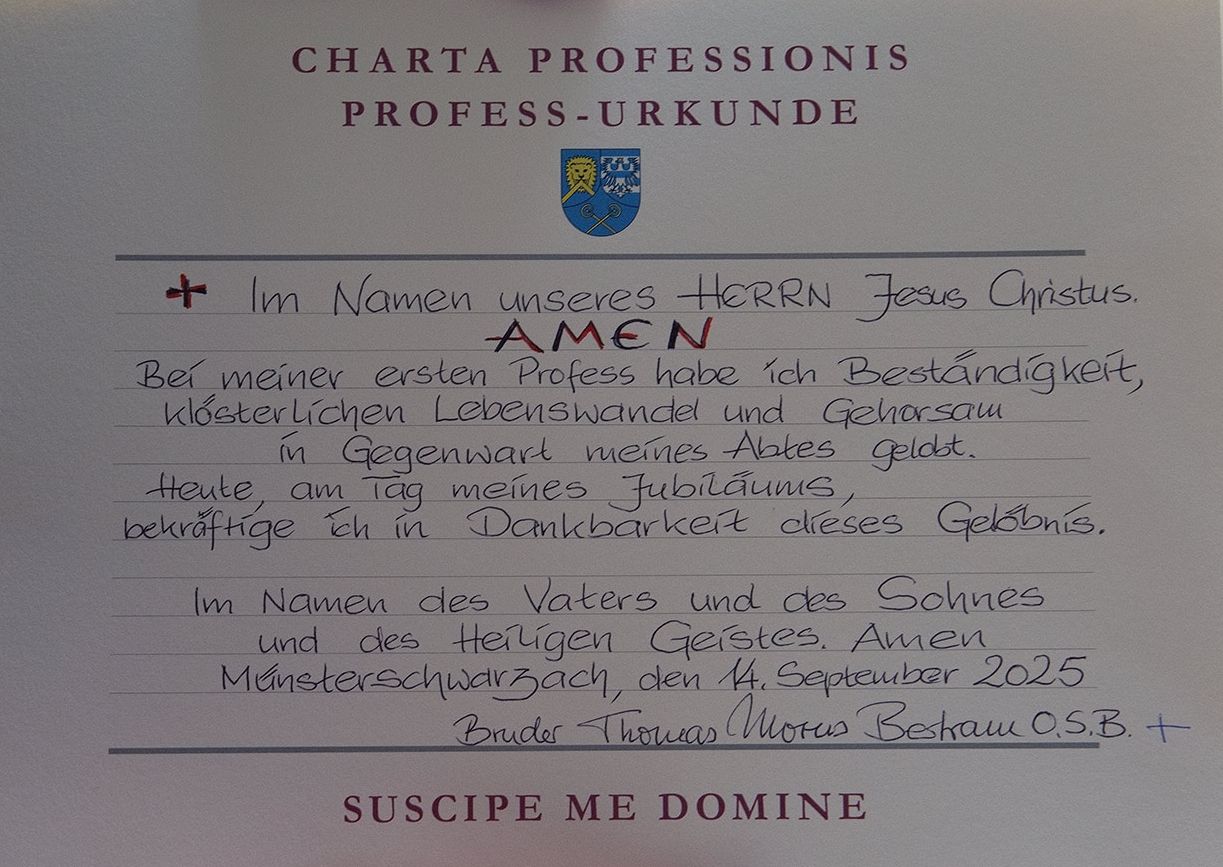 CHARTA PROFESSIONIS
PROFESS-URKUNDE
+ Im Namen unseres HERRN Jesus Christus.
AMEN
Bei meiner ersten Profess habe ich Beständigkeit,
klösterlichen Lebenswandel und Gehorsam
in Gegenwart meines Abtes gelobt.
Heute, am Tag meines Jubiläums,
bekräftige ich in Dankbarkeit dieses Gelöbnis.
Im Namen des Vaters und des Sohnes
und des Heiligen Geistes. Amen
Münsterschwarzach, den 14. September 2025
Bruder Thomas Morus Bertram O.S.B. +
SUSCIPE ME DOMINE